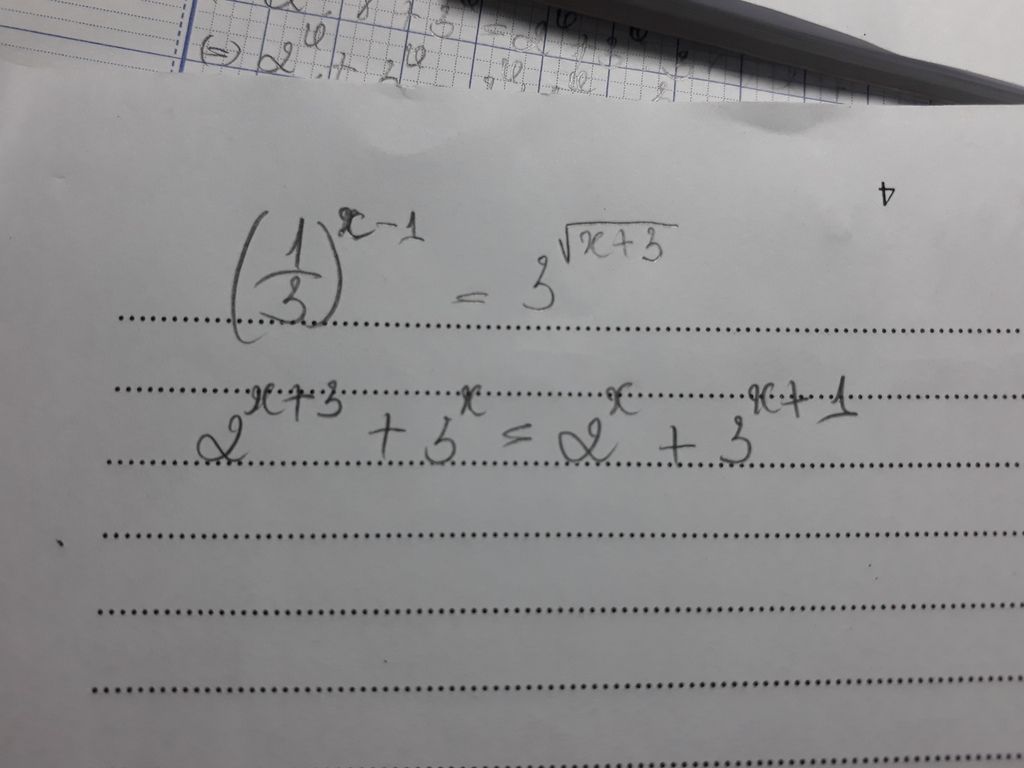 (⇔) 2^x
4
(1/3)^{x-1} = 3^{√(x+3)}
2^{x+3} + 3^x = 2^x + 3^{x+1}